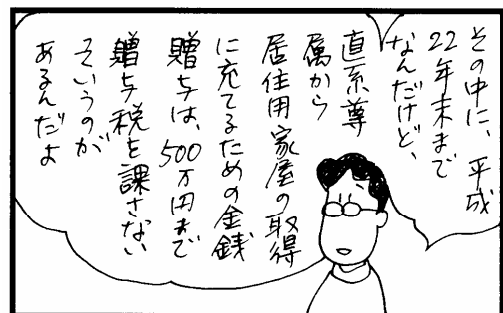 その中に、平成
22年末まで
なんだけど、
直系尊
属から
居住用家屋の取得
に充てるための金銭
贈与は、500万円まで
贈与税を課さない
そいうのが
あるんだよ